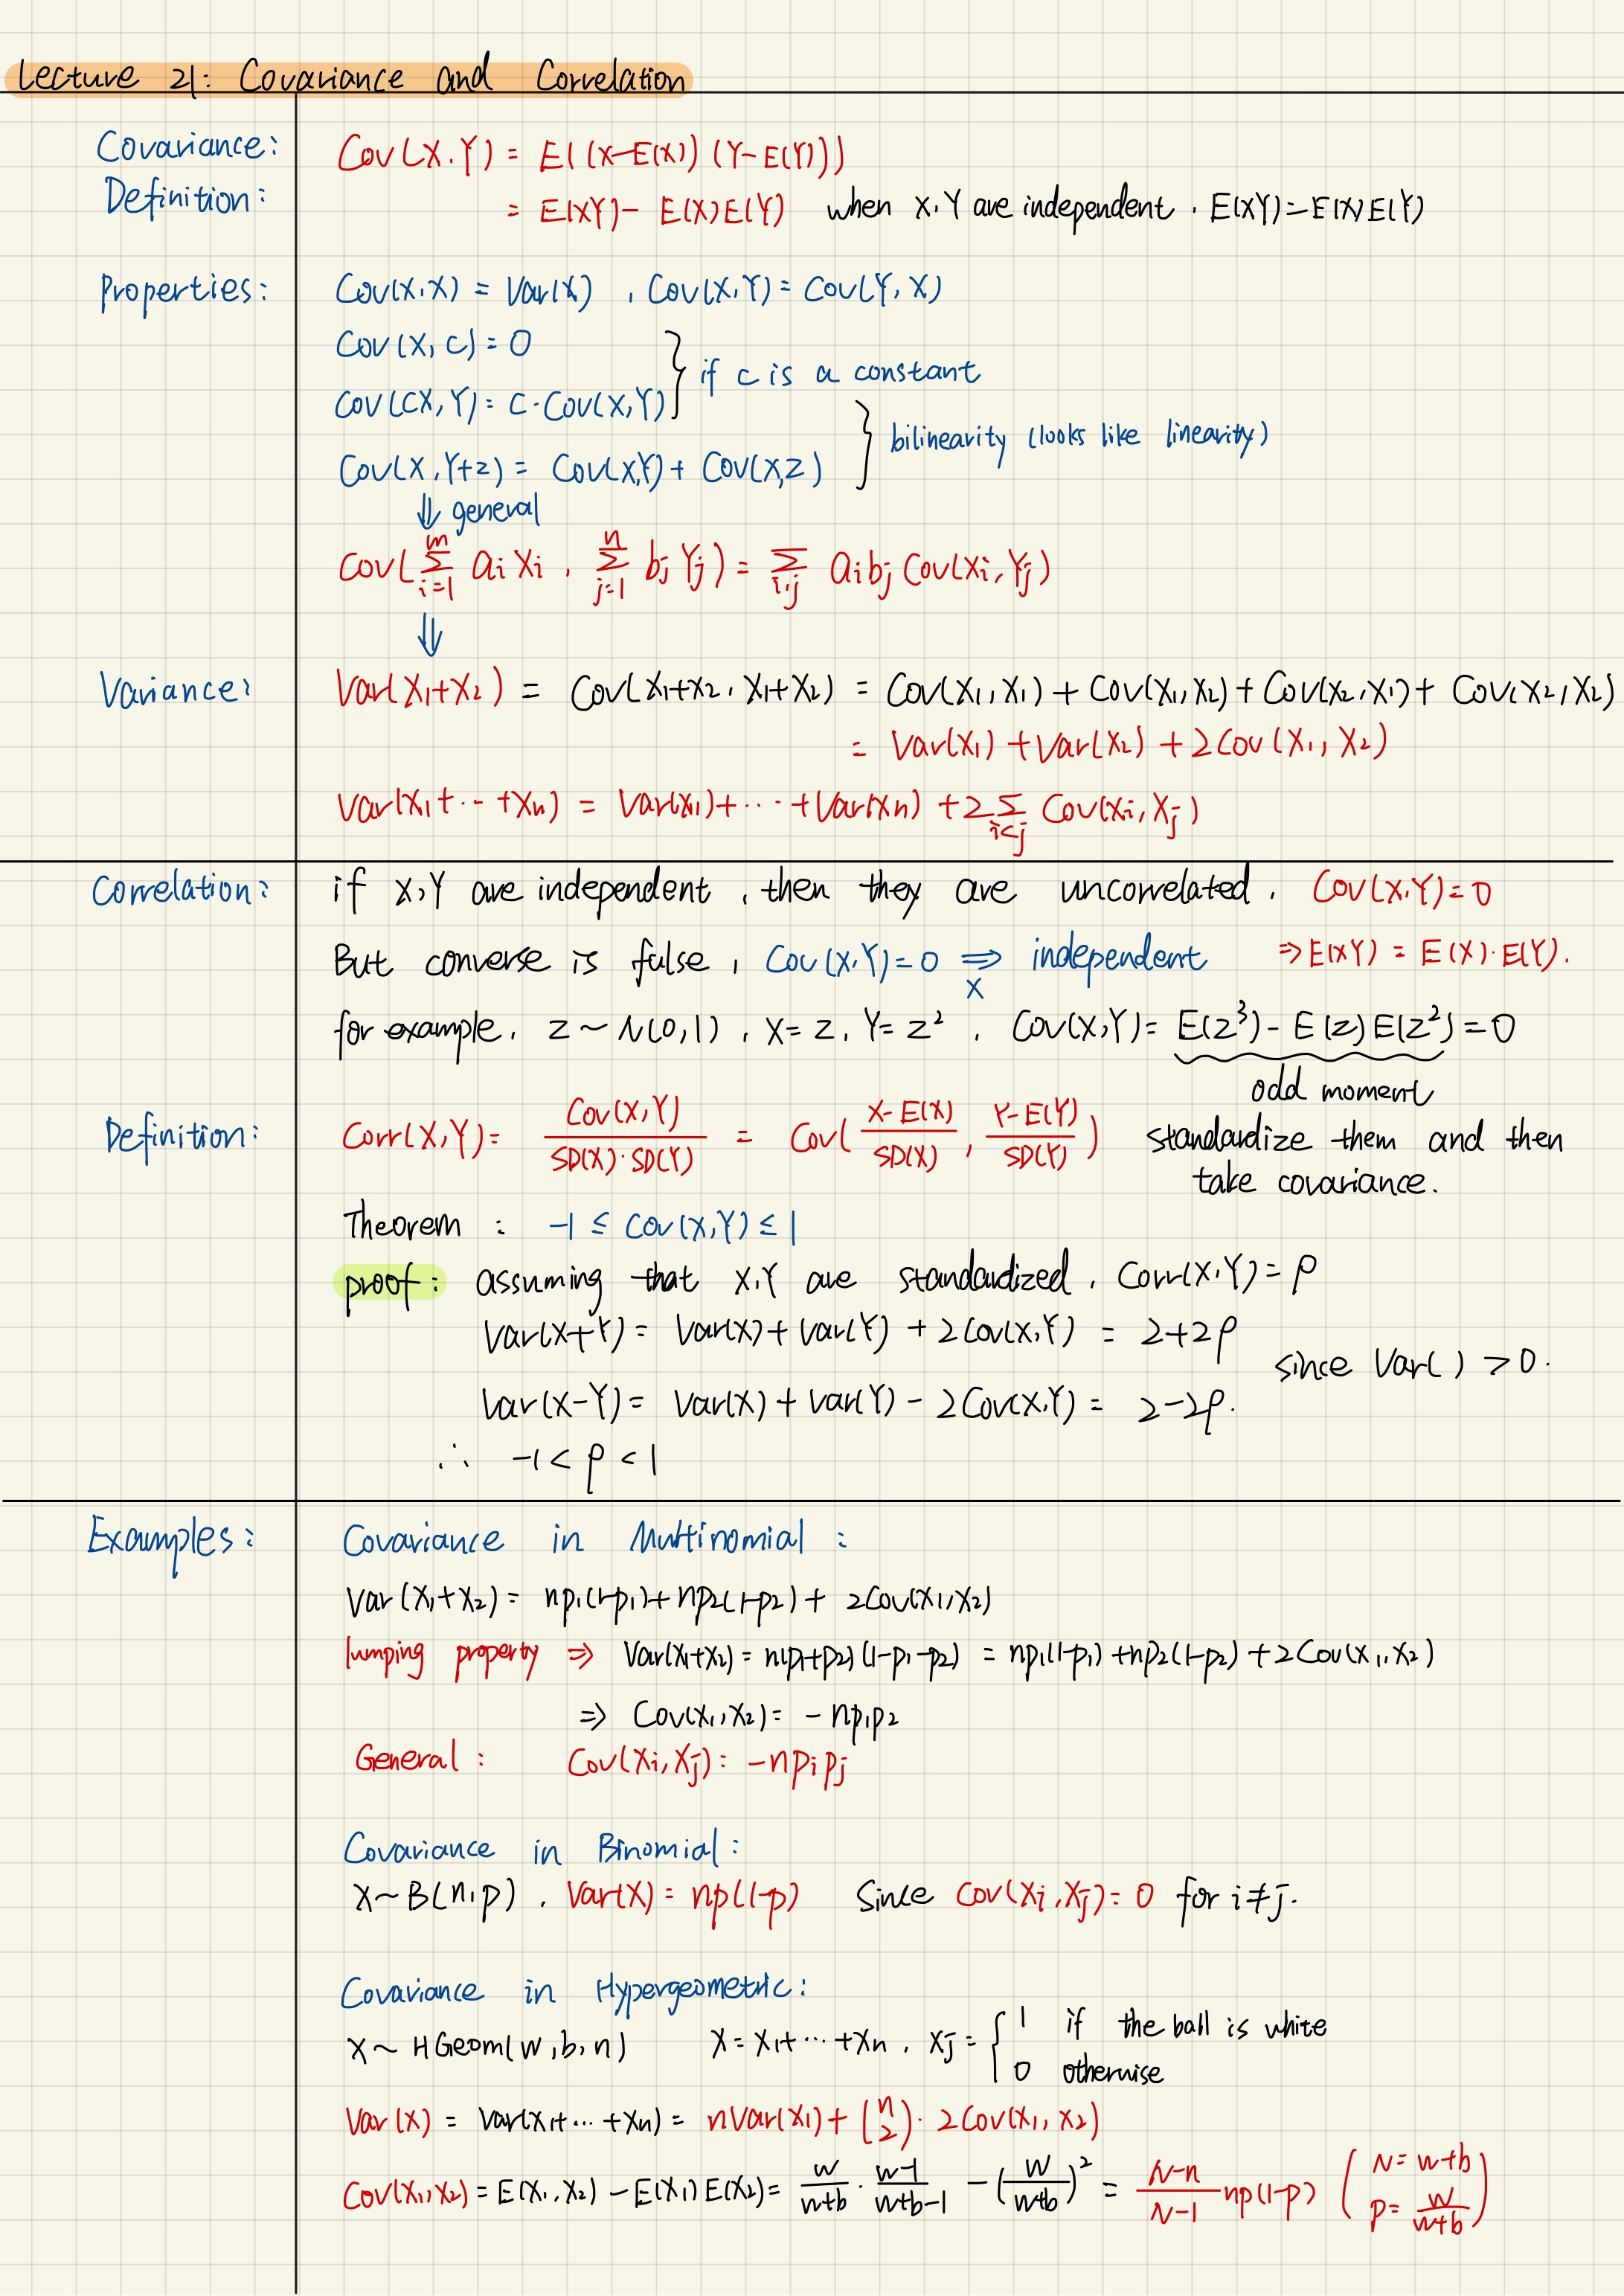 Lecture 21: Covariance and Correlation
Covariance:
Definition:
Cov(X,Y) = E((X-E(X))(Y-E(Y)))
= E(XY)- E(X)E(Y) when X,Y are independent, E(XY)=E(X)E(Y)
Properties:
Cov(X,X) = Var(X) , Cov(X,Y) = Cov(Y,X)
Cov(X,c)=0
} if c is a constant
Cov(cX,Y)= c·Cov(X,Y)
} bilinearity (looks like linearity)
Cov(X,Y+Z) = Cov(X,Y)+ Cov(X,Z)
⇓ general
Cov(∑_{i=1}^{m} a_i X_i , ∑_{j=1}^{n} b_j Y_j) = ∑_{i,j} a_i b_j Cov(X_i,Y_j)
⇓
Variance:
Var(X₁+X₂) = Cov(X₁+X₂, X₁+X₂) = Cov(X₁,X₁) + Cov(X₁,X₂) + Cov(X₂,X₁) + Cov(X₂,X₂)
= Var(X₁) + Var(X₂) + 2Cov(X₁, X₂)
Var(X₁+···+Xn) = Var(X₁)+···+Var(Xn) + 2∑_{i<j} Cov(X_i,X_j)
Correlation:
if X,Y are independent , then they are uncorrelated , Cov(X,Y)=0
But converse is false , Cov(X,Y)=0 ⇒ independent ⇒E(XY) = E(X)·E(Y).
X
for example, Z ~ N(0,1) , X=Z, Y=Z² , Cov(X,Y)= E(Z³)- E(Z)E(Z²)=0
odd moment
Definition:
Corr(X,Y)= Cov(X,Y)/(SD(X)·SD(Y)) = Cov((X-E(X))/SD(X) , (Y-E(Y))/SD(Y)) standardize them and then
take covariance.
Theorem : -1 ≤ Cov(X,Y) ≤ 1
proof: assuming that X,Y are standardized, Corr(X,Y)=ρ
Var(X+Y)= Var(X)+Var(Y) + 2Cov(X,Y) = 2+2ρ
since Var( ) > 0.
Var(X-Y)= Var(X)+Var(Y) - 2Cov(X,Y) = 2-2ρ.
∴ -1 < ρ < 1
Examples:
Covariance in Multinomial :
Var(X₁+X₂) = np₁(1-p₁)+np₂(1-p₂) + 2Cov(X₁,X₂)
lumping property ⇒ Var(X₁+X₂) = n(p₁+p₂)(1-p₁-p₂) = np₁(1-p₁)+np₂(1-p₂)+2Cov(X₁,X₂)
⇒ Cov(X₁,X₂)= -np₁p₂
General : Cov(X_i,X_j) = -np_i p_j
Covariance in Binomial:
X~B(n,p) , Var(X)= np(1-p) Since Cov(X_i,X_j)=0 for i≠j.
Covariance in Hypergeometric:
X~ HGeom(w,b,n) X=X₁+···+Xn , X_j = { 1 if the ball is white
0 otherwise
Var(X) = Var(X₁+···+Xn) = nVar(X₁)+(n 2)·2Cov(X₁,X₂)
Cov(X₁,X₂) = E(X₁,X₂) - E(X₁)E(X₂)= w/(w+b) · (w-1)/(w+b-1) - (w/(w+b))² = (N-n)/(N-1) np(1-p) (N=w+b
p= w/(w+b))